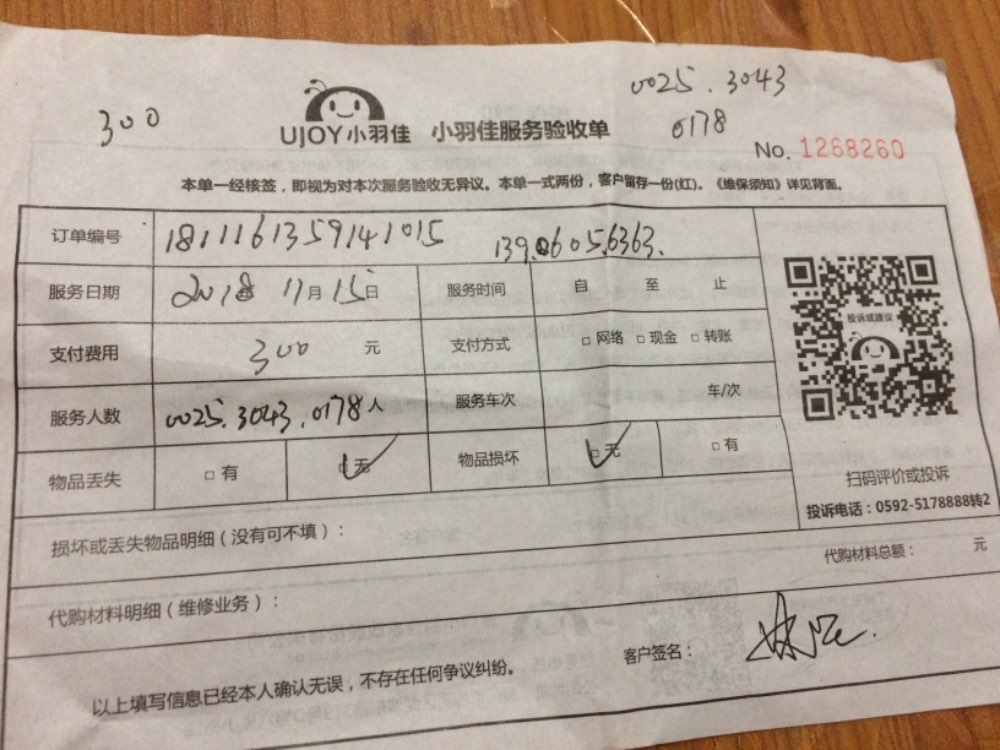 300
0025.3043
0178
UJOY小羽佳 小羽佳服务验收单
No. 1268260
本单一经核签,即视为对本次服务验收无异议。本单一式两份,客户留存一份(红)。《维保须知》详见背面。
订单编号 1811161359141015 139.0605.6363.
服务日期 2018年 11月15日 服务时间 自 至 止
支付费用 300 元 支付方式 □网络 □现金 □转账
服务人数 0025.3043.0178人 服务车次 车/次
物品丢失 □有 □无 物品损坏 □无 □有
投诉或建议
扫码评价或投诉
投诉电话:0592-5178888转2
损坏或丢失物品明细(没有可不填):
代购材料总额: 元
代购材料明细(维修业务):
客户签名:
以上填写信息已经本人确认无误,不存在任何争议纠纷。